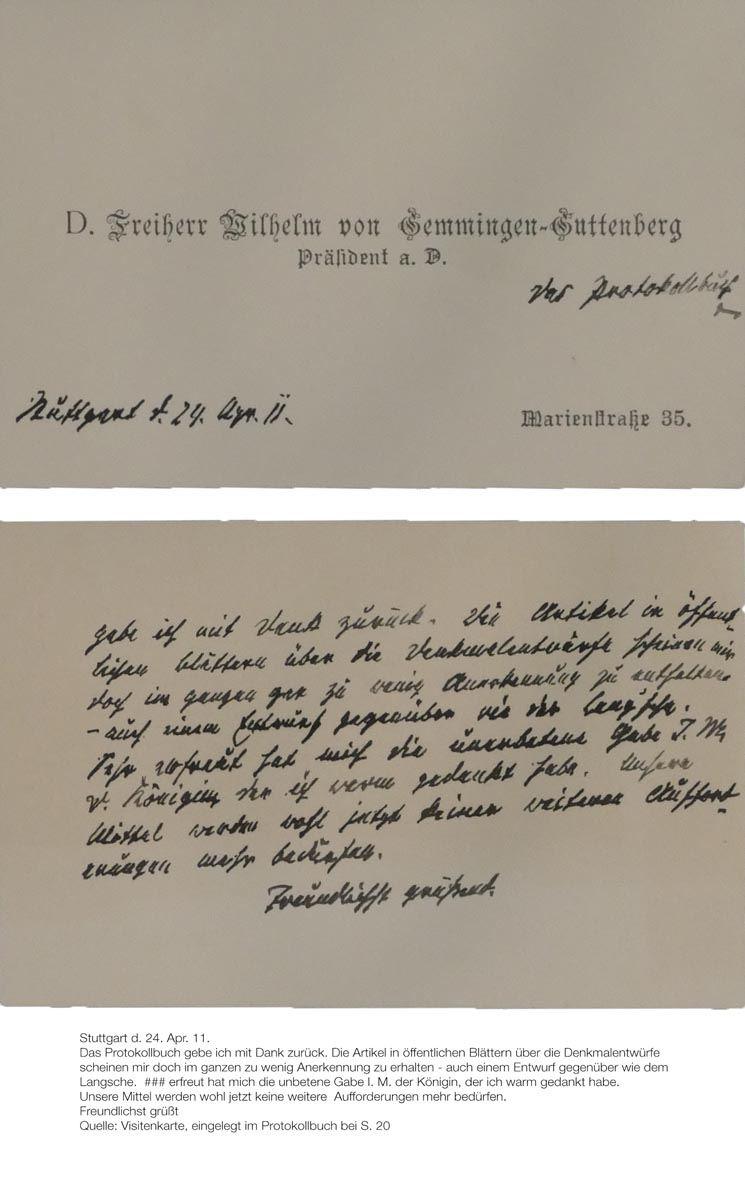 D. Freiherr Wilhelm von Gemmingen-Guttenberg
Präsident a. D.
Das Protokollbuch
Stuttgart d. 24. Apr. 11.
Marienstraße 35.
gebe ich mit Dank zurück. Die Artikel in öffent-
lichen Blättern über die Denkmalentwürfe scheinen mir
doch im ganzen gar zu wenig Anerkennung zu enthalten
- auch einem Entwurf gegenüber wie der Lang'sche.
Sehr erfreut hat mich die unerbetene Gabe I. M.
d. Königin, der ich warm gedankt habe. Unsere
Mittel werden wohl jetzt keinen weiteren Aufford-
erungen mehr bedürfen.
Freundlichst grüßend.
Stuttgart d. 24. Apr. 11.
Das Protokollbuch gebe ich mit Dank zurück. Die Artikel in öffentlichen Blättern über die Denkmalentwürfe
scheinen mir doch im ganzen zu wenig Anerkennung zu erhalten - auch einem Entwurf gegenüber wie dem
Langsche.  ### erfreut hat mich die unbetene Gabe I. M. der Königin, der ich warm gedankt habe.
Unsere Mittel werden wohl jetzt keine weitere  Aufforderungen mehr bedürfen.
Freundlichst grüßt
Quelle: Visitenkarte, eingelegt im Protokollbuch bei S. 20